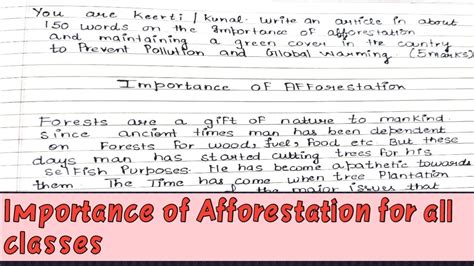 You are Keerti / Kunal. Write an article in about
150 words on the importance of afforestation
and maintaining a green cover in the country
to Prevent Pollution and Global Warming (5marks)
Importance of Afforestation
Forests are a gift of nature to mankind.
Since ancient times man has been dependent
on Forests For wood, fuel, Food etc But these
days man has started cutting trees for his
selfish Purposes. He has become apathetic towards
them The Time has come when tree Plantation
the major issues that
Importance of Afforestation for all
classes